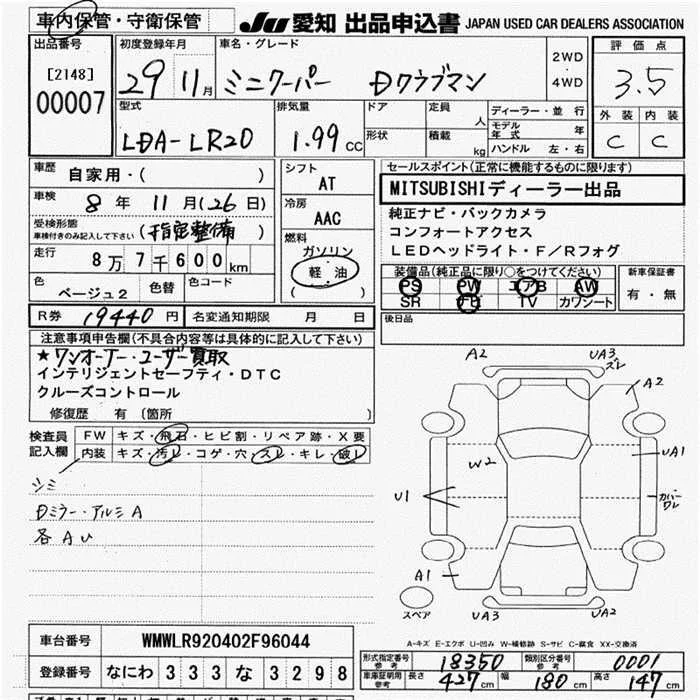 車内保管・守衛保管
JU 愛知 出品申込書 JAPAN USED CAR DEALERS ASSOCIATION
出品番号 [2148] 00007
初度登録年月 29 11月
車名・グレード ミニクーパー Dクラブマン
2WD・4WD
評価点 3.5
外装 内装
C C
型式 LDA-LR20
排気量 1.99 CC
ドア 定員 人
形状 積載 kg
ディーラー・並行
モデル年式 年
ハンドル 左・右
車歴 自家用・( )
シフト AT
セールスポイント(正常に機能するものに限ります)
MITSUBISHIディーラー出品
車検 8年 11月(26日)
冷房 AAC
純正ナビ・バックカメラ
コンフォートアクセス
LEDヘッドライト・F/Rフォグ
受検形態 車検付きのみ記入して下さい (指定整備)
燃料 ガソリン
軽油
( )
走行 8万7千600km
装備品(純正品に限り○をつけてください)
PS PW エアB AW
SR FB TV カワシート
新車保証書 有・無
色 ベージュ2 色替 色コード
R券 19440円 名変通知期限 月 日
後日品
注意事項申告欄(不具合内容等は具体的に記入して下さい)
★ワンオーナー・ユーザー買取
インテリジェントセーフティ・DTC
クルーズコントロール
修復歴 有 (箇所 )
検査員記入欄
FW キズ・飛石・ヒビ割・リペア跡・X要
内装 キズ・汚レ・コゲ・穴・スレ・キレ・破レ
シミ
Dミラー・アルミA
各AU
A2
UA3
ズレ
A2
UA1
W2
U1
カバーワレ
A1
スペア
UA3
UA2
A-キズ E-エクボ U-凹み W-補修跡 S-サビ C-腐食 XX-交換済
車台番号 WMWLR920402F96044
登録番号 なにわ 333 な 3298
型式指定番号 参考 18350 類別区分番号 参考 0001
車庫証明用 参考 長さ 427cm 幅 180cm 高さ 147cm